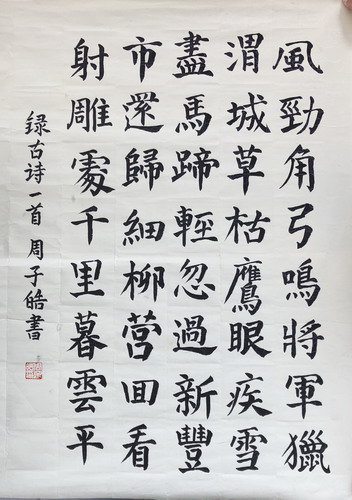 風勁角弓鳴將軍獵
渭城草枯鷹眼疾雪
盡馬蹄輕忽過新豐
市還歸細柳營回看
射雕處千里暮雲平
録古诗一首 周子皓書